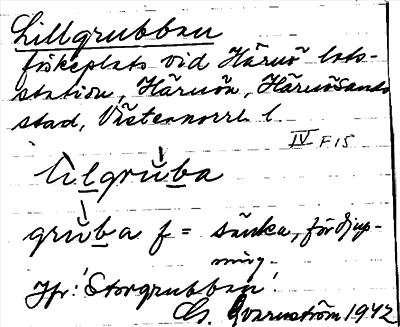 Lillgrubban
fiskeplats vid Härnö lots-
station, Härnön, Härnösands
stad, Västernorrl. l.
IV F15
lìlgrùba
grùba f = sänka, fördjup-
ning.
Jfr: 'Storgrubban'.
G. Qvarnström 1942